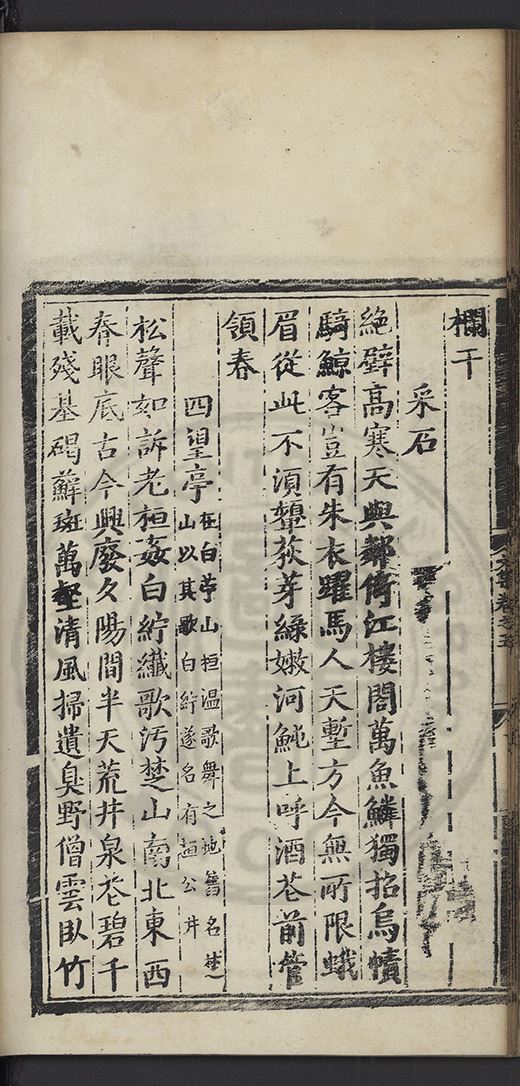 欄干
采石
絶壁髙寒天與鄰倚江樓閣萬魚鱗獨招烏幘
騎鯨客豈有朱衣躍馬人天塹方今無所限蛾
眉從此不湏顰荻芽綠嫩河魨上呼酒花前管
領春
四望亭在白苧山桓温歌舞之地舊名楚
山以其歌白紵遂名有桓公井
松聲如訴老桓姦白紵纖歌汚楚山南北東西
春眼底古今興廢夕陽間半天荒井泉花碧千
載殘基碣蘚斑萬壑清風掃遺臭野僧雲臥竹